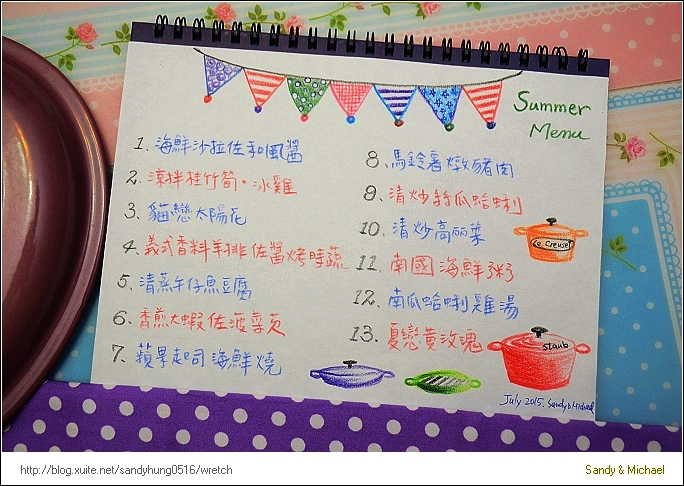 Summer
Menu
1. 海鮮沙拉佐和風醬
2. 涼拌桂竹筍·冰雞
3. 貓戀太陽花
4. 義式香料羊排佐醬烤時蔬
5. 清蒸午仔魚豆腐
6. 香煎大蝦佐菠菜
7. 蘋果起司海鮮燒
8. 馬鈴薯燉豬肉
9. 清炒絲瓜蛤蜊
10. 清炒高麗菜
11. 南國海鮮粥
12. 南瓜蛤蜊雞湯
13. 夏戀黃玫瑰
Le Creuset
Staub
July 2015. Sandy & Michael
http://blog.xuite.net/sandyhung0516/wretch
Sandy & Michael